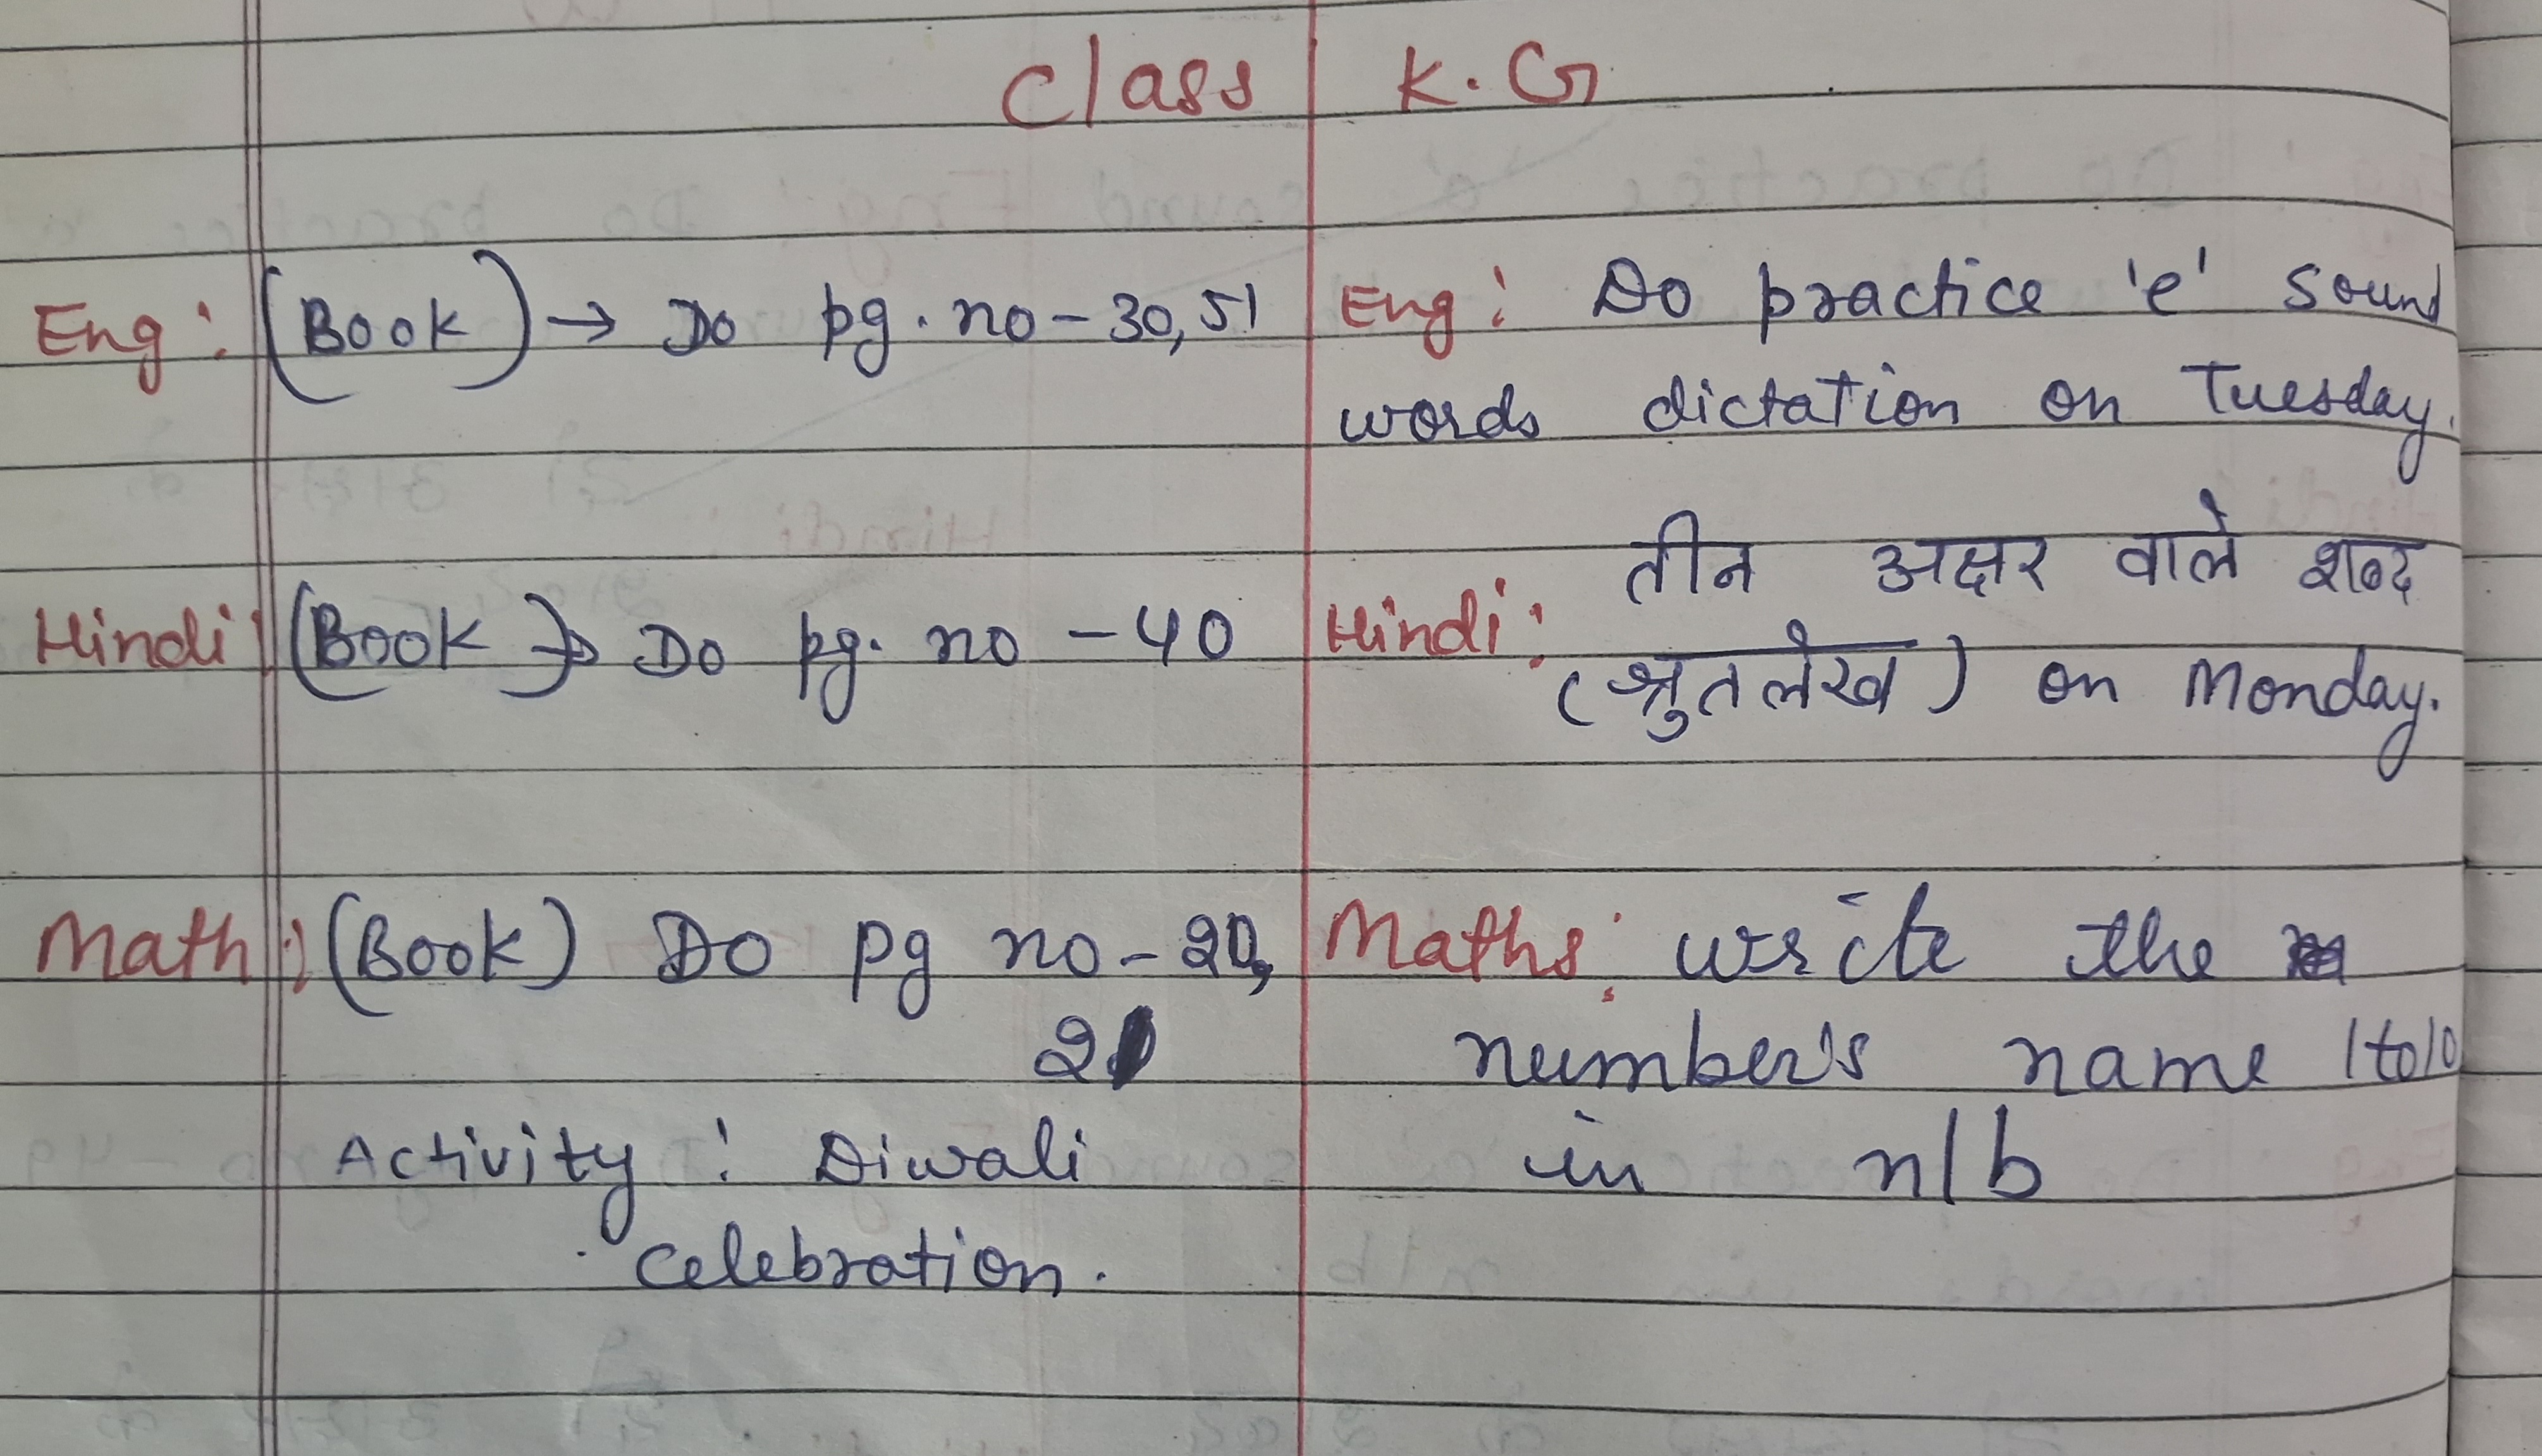 Class K.G
Eng: (Book) → Do pg. no - 30, 51
Hindi: (Book) → Do pg. no - 40
Math: (Book) Do pg no - 20,
21
Activity: Diwali
celebration.
Eng: Do practice 'e' sound
words dictation on Tuesday.
तीन अक्षर वाले शब्द
Hindi:
(श्रुतलेख) on Monday.
Maths: write the
number's name 1to10
in n/b